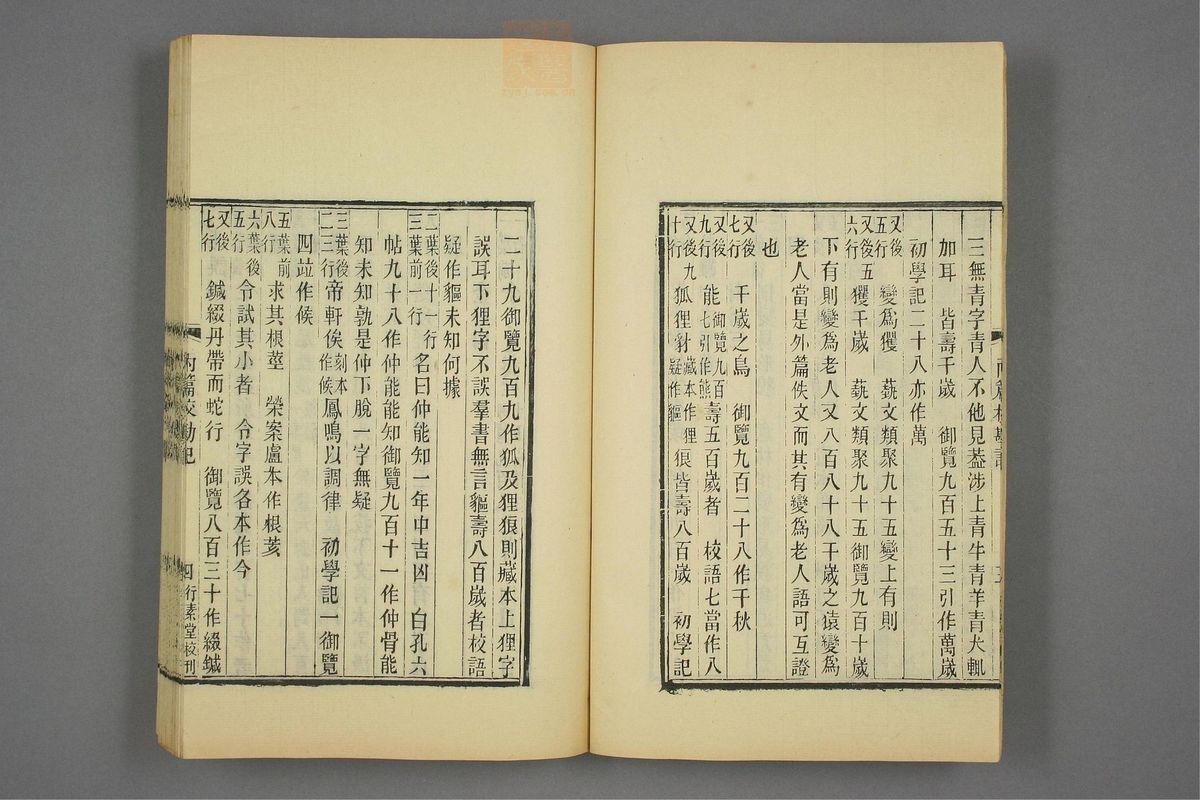 三無青字青人不他見葢涉上青牛青羊青犬輒
加耳　皆壽千歲　御覽九百五十三引作萬歲
初學記二十八亦作萬
又後五行　變爲玃　蓺文類聚九十五變上有則
又後五六行　玃千歲　蓺文類聚九十五御覽九百十歲
下有則變爲老人又八百八十八千歲之猿變爲
老人當是外篇佚文而其有變爲老人語可互證
也
又後七行　千歲之鳥　御覽九百二十八作千秋
又後九行　能御覽九百七引作熊壽五百歲者　校語七當作八
又後九十行　狐狸豺藏本作狸疑作貙狼皆壽八百歲　初學記
二十九御覽九百九作狐及狸狼則藏本上狸字
誤耳下狸字不誤羣書無言貙壽八百歲者校語
疑作貙未知何據
二葉後十一行三葉前一行　名曰仲能知一年中吉凶　白孔六
帖九十八作仲能能知御覽九百十一作仲骨能
知未知孰是仲下脫一字無疑
三葉後二三行　帝軒俟刻本作候鳳鳴以調律　初學記一御覽
四竝作候
五葉前八行　求其根莖　榮案盧本作根荄
六葉後五行　令試其小者　令字誤各本作今
又後七行　鍼綴丹帶而蛇行　御覽八百三十作綴鍼
內篇校勘記
四行素堂校刊